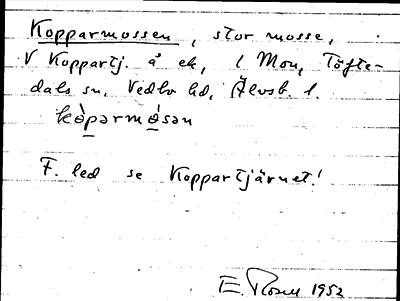 Kopparmossen, stor mosse,
V Koppartj. å ek, l Mon, Töfte-
dals sn, Vedbo hd, Älvsb. l.
kòparmòsən
F. led se Koppartjärnet!
E. Rosell 1952